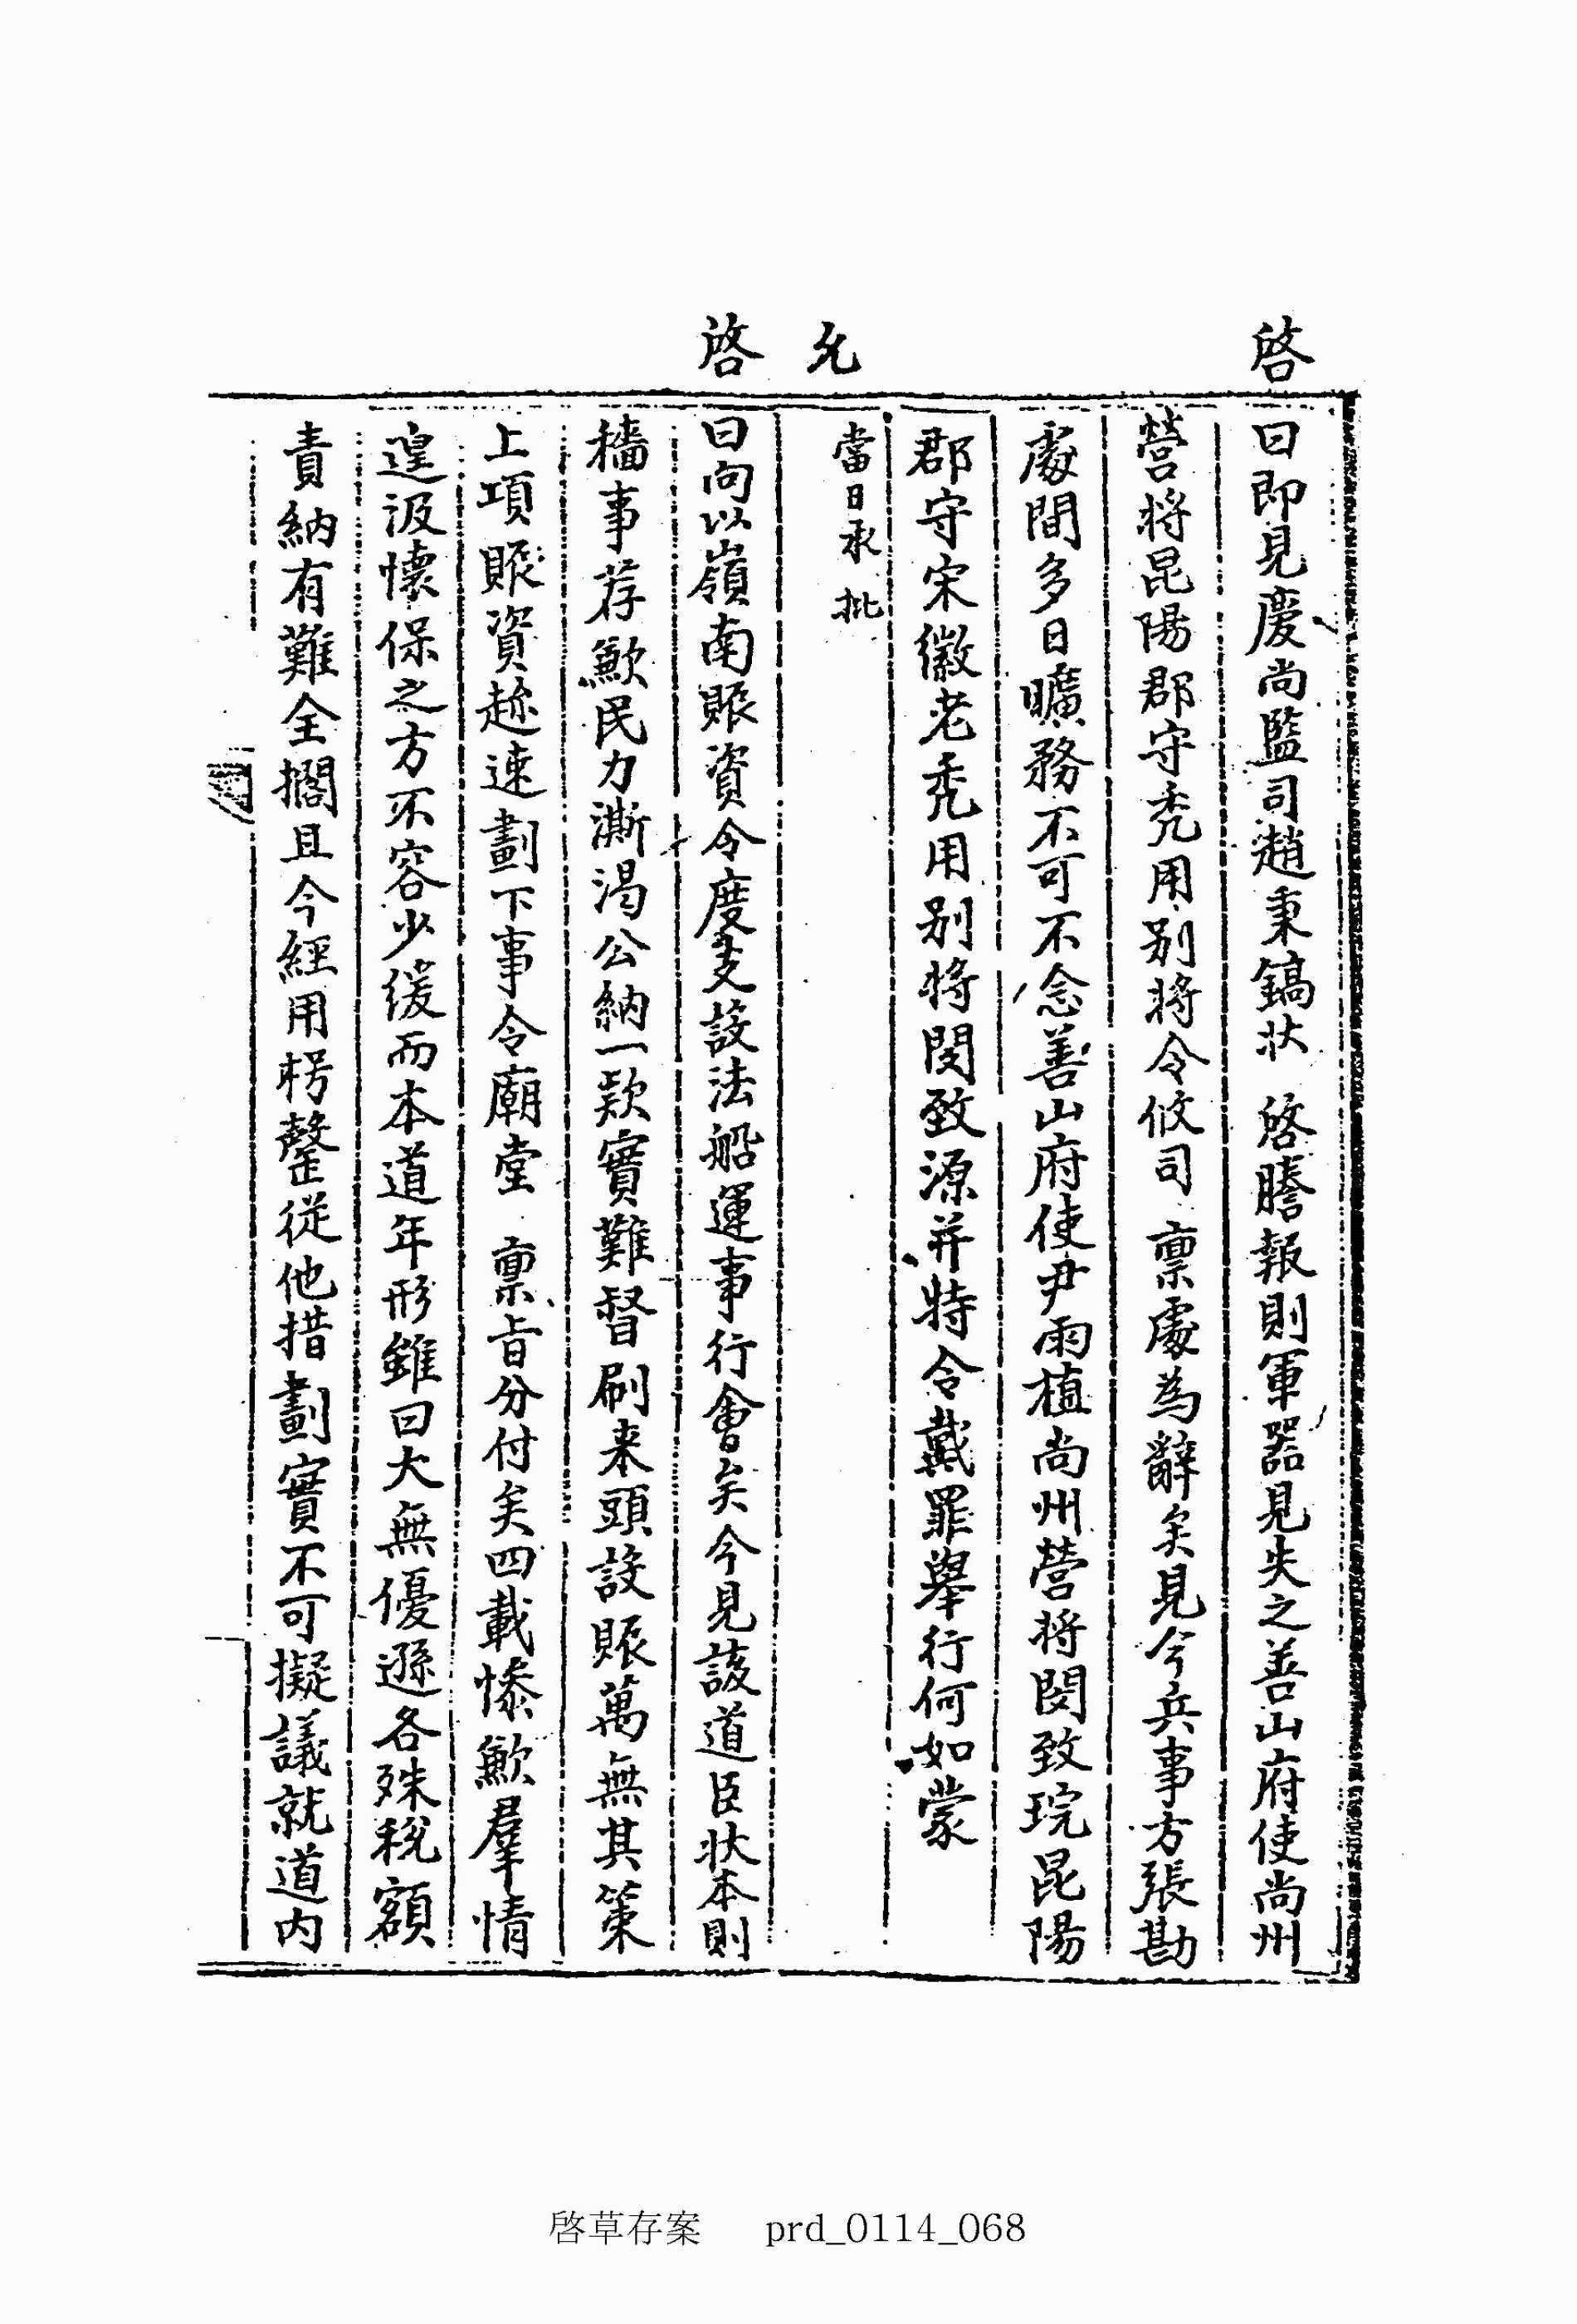 啓曰卽見慶尚監司趙秉鎬狀 啓謄報則軍器見失之善山府使尚州
營將昆陽郡守禿用別將令攸司 稟處為辭矣見今兵事方張勘
處間多日曠務不可不念善山府使尹雨植尚州營將閔致琓昆陽
郡守宋徽老禿用別將閔致源并特令戴罪舉行何如蒙
允當日承 批
啓曰向以嶺南賑資令度支設法船運事行會矣今見該道臣狀本則
穡事荐歉民力澌渴公納一款實難督刷来頭設賑萬無其策
上項賑資趂速劃下事令廟堂 稟旨分付矣四載慘歉羣情
遑汲懷保之方不容少緩而本道年形雖曰大無優遜各殊稅額
責納有難全擱且今經用枵罄從他措劃實不可擬議就道內
啓草存案 prd_0114_068